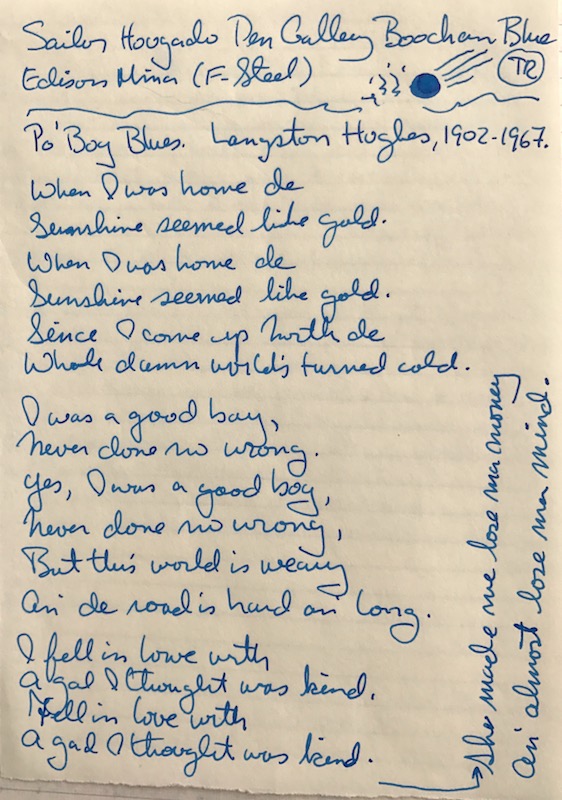 Sailor Hougado Pen Gallery Boochan Blue
Edison Mina (F-Steel)
TR
Po' Boy Blues. Langston Hughes, 1902-1967.
When I was home de
Sunshine seemed like gold.
When I was home de
Sunshine seemed like gold.
Since I come up North de
Whole damn world's turned cold.
I was a good boy,
Never done no wrong.
Yes, I was a good boy,
Never done no wrong,
But this world is weary
An' de road is hard an' long.
I fell in love with
A gal I thought was kind.
Fell in love with
A gal I thought was kind.
She made me lose ma money
An' almost lose ma mind.